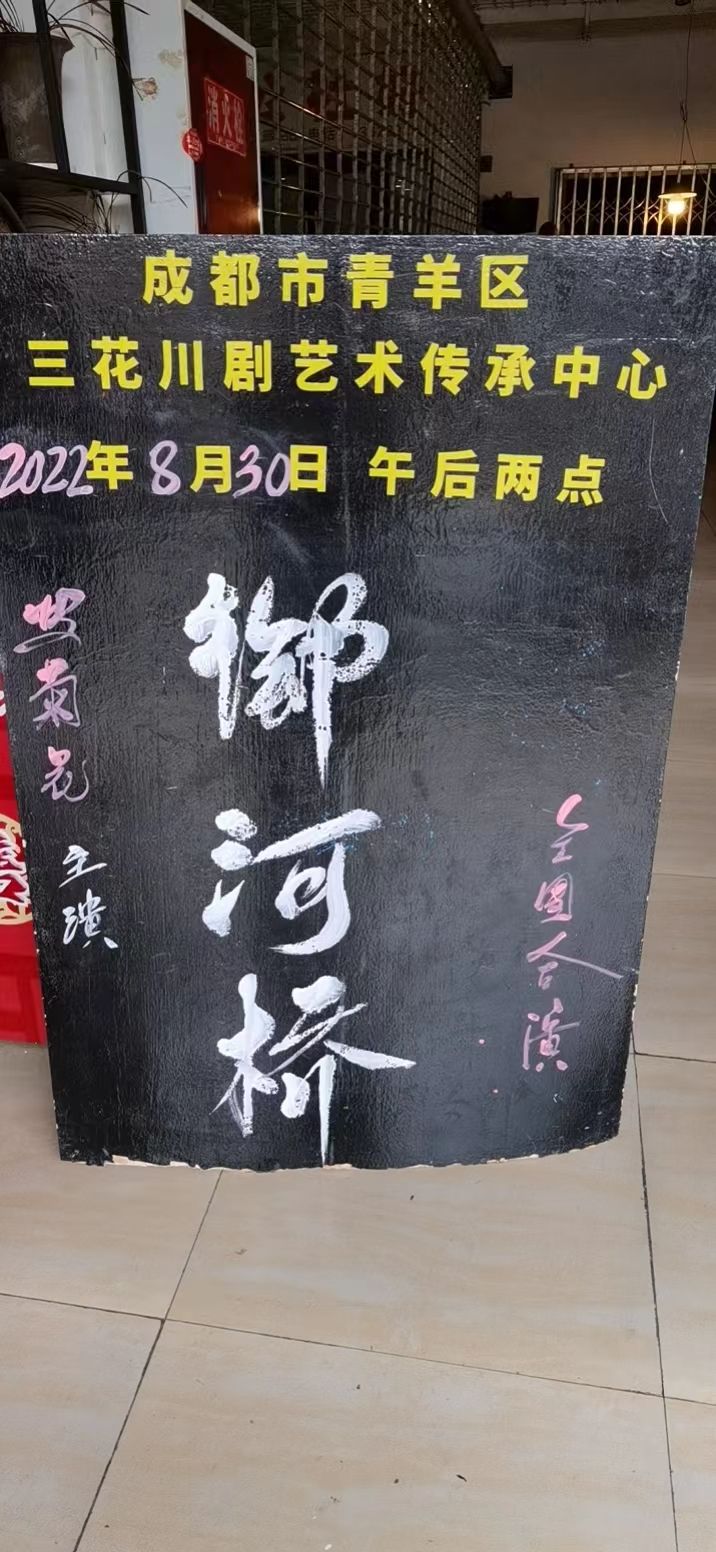 消火栓
成都市青羊区
三花川剧艺术传承中心
2022年8月30日 午后两点
御河桥
菊花 主演
全团合演